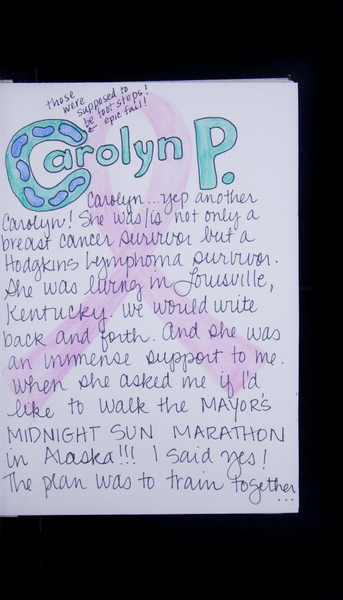 those
were
supposed to
be foot steps!
epic fail!
Carolyn P.
Carolyn...yep another
Carolyn! She was/is not only a
breast cancer survivor but a
Hodgkins Lymphoma survivor.
She was living in Louisville,
Kentucky. We would write
back and forth. And she was
an immense support to me.
When she asked me if I'd
like to walk the MAYOR'S
MIDNIGHT SUN MARATHON
in Alaska!!! I said yes!
The plan was to train together
...